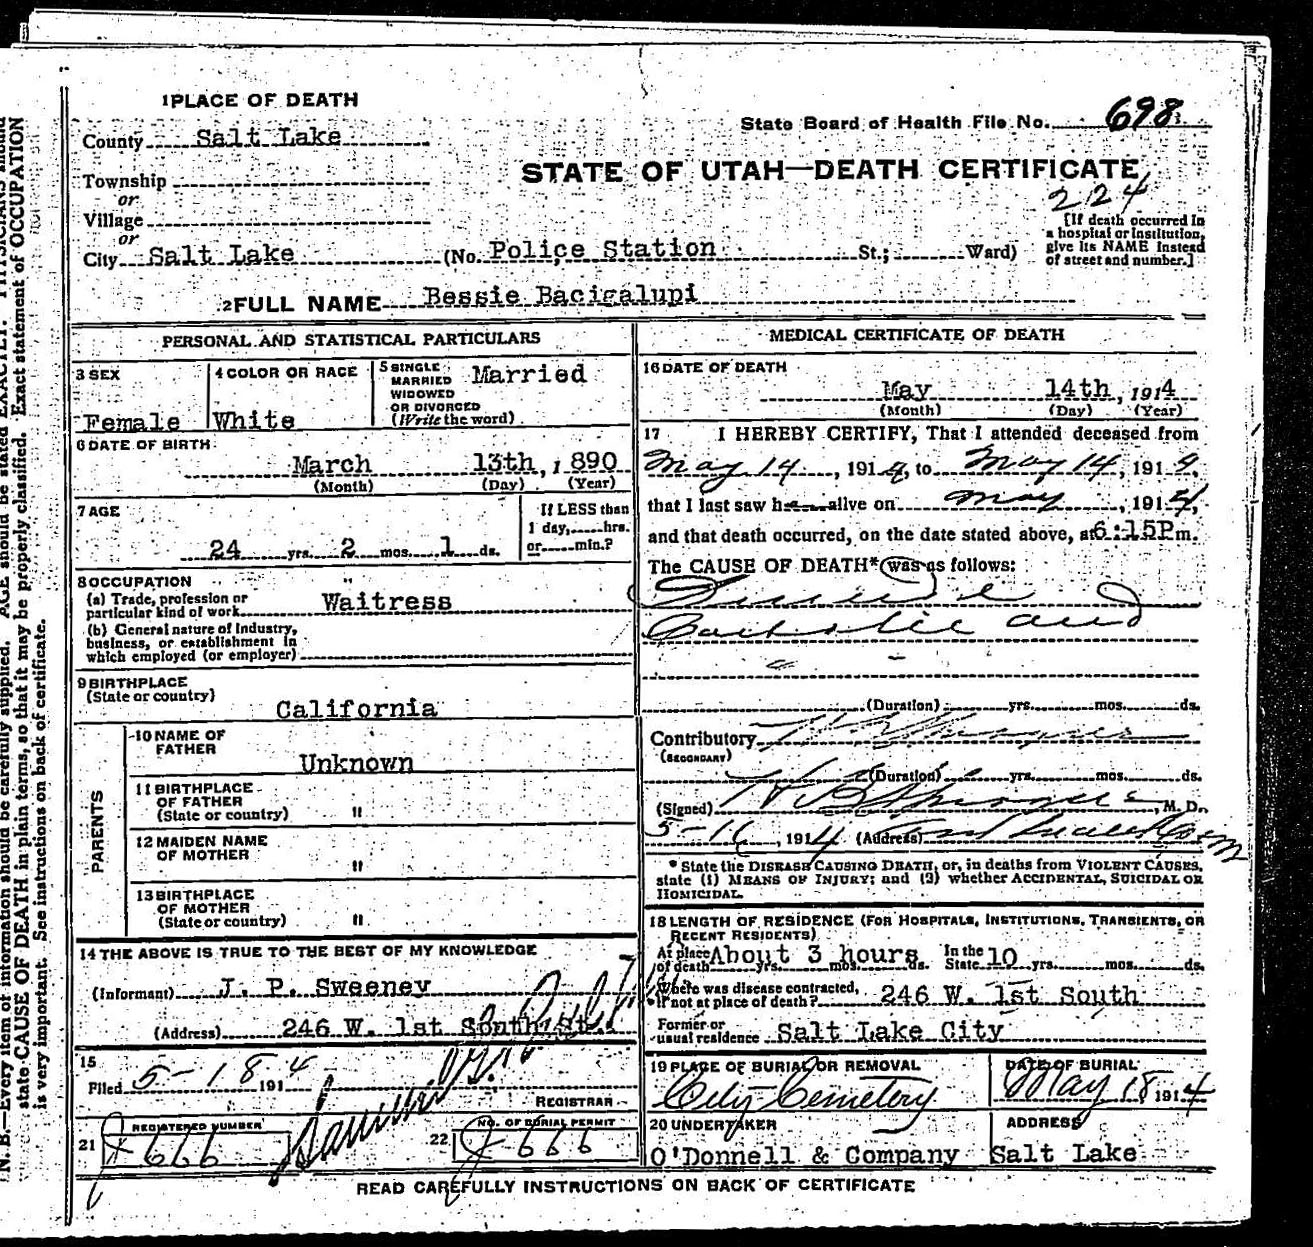 1 PLACE OF DEATH
County Salt Lake
State Board of Health File No. 698
STATE OF UTAH—DEATH CERTIFICATE
224
Township
or
Village
or
City Salt Lake (No. Police Station St.; Ward)
[If death occurred in
a hospital or institution,
give its NAME instead
of street and number.]
2 FULL NAME Bessie Bacigalupi
PERSONAL AND STATISTICAL PARTICULARS
3 SEX
Female
4 COLOR OR RACE
White
5 SINGLE
MARRIED
WIDOWED
OR DIVORCED
(Write the word)
Married
6 DATE OF BIRTH
March 13th, 1890
(Month) (Day) (Year)
7 AGE
24 yrs. 2 mos. 1 ds.
If LESS than
1 day, hrs.
or min.?
8 OCCUPATION
(a) Trade, profession or
particular kind of work Waitress
(b) General nature of Industry,
business, or establishment in
which employed (or employer)
9 BIRTHPLACE
(State or country)
California
PARENTS
10 NAME OF
FATHER
Unknown
11 BIRTHPLACE
OF FATHER
(State or country) "
12 MAIDEN NAME
OF MOTHER "
13 BIRTHPLACE
OF MOTHER
(State or country) "
14 THE ABOVE IS TRUE TO THE BEST OF MY KNOWLEDGE
(Informant) J. P. Sweeney
(Address) 246 W. 1st South St.
15
Filed 5-18 1914
REGISTRAR
21 REGISTERED NUMBER
J 666
22 NO. OF BURIAL PERMIT
J 666
MEDICAL CERTIFICATE OF DEATH
16 DATE OF DEATH
May 14th, 1914
(Month) (Day) (Year)
17 I HEREBY CERTIFY, That I attended deceased from
May 14, 1914, to May 14, 1914,
that I last saw h alive on May, 1914,
and that death occurred, on the date stated above, at 6:15P m.
The CAUSE OF DEATH* was as follows:
Suicide
Carbolic acid
(Duration) yrs. mos. ds.
Contributory
(SECONDARY)
(Duration) yrs. mos. ds.
(Signed) M. D.
5-16, 1914 (Address)
* State the DISEASE CAUSING DEATH, or, in deaths from VIOLENT CAUSES,
state (1) MEANS OF INJURY; and (2) whether ACCIDENTAL, SUICIDAL OR
HOMICIDAL.
18 LENGTH OF RESIDENCE (FOR HOSPITALS, INSTITUTIONS, TRANSIENTS, OR
RECENT RESIDENTS)
At place
of death About 3 hours yrs. mos. ds. In the
State 10 yrs. mos. ds.
Where was disease contracted,
if not at place of death? 246 W. 1st South
Former or
usual residence Salt Lake City
19 PLACE OF BURIAL OR REMOVAL
City Cemetery
DATE OF BURIAL
May 18 1914
20 UNDERTAKER
O'Donnell & Company
ADDRESS
Salt Lake
READ CAREFULLY INSTRUCTIONS ON BACK OF CERTIFICATE
N. B.—Every item of information should be carefully supplied. AGE should be stated EXACTLY. PHYSICIANS should
state CAUSE OF DEATH in plain terms, so that it may be properly classified. Exact statement of OCCUPATION
is very important. See instructions on back of certificate.